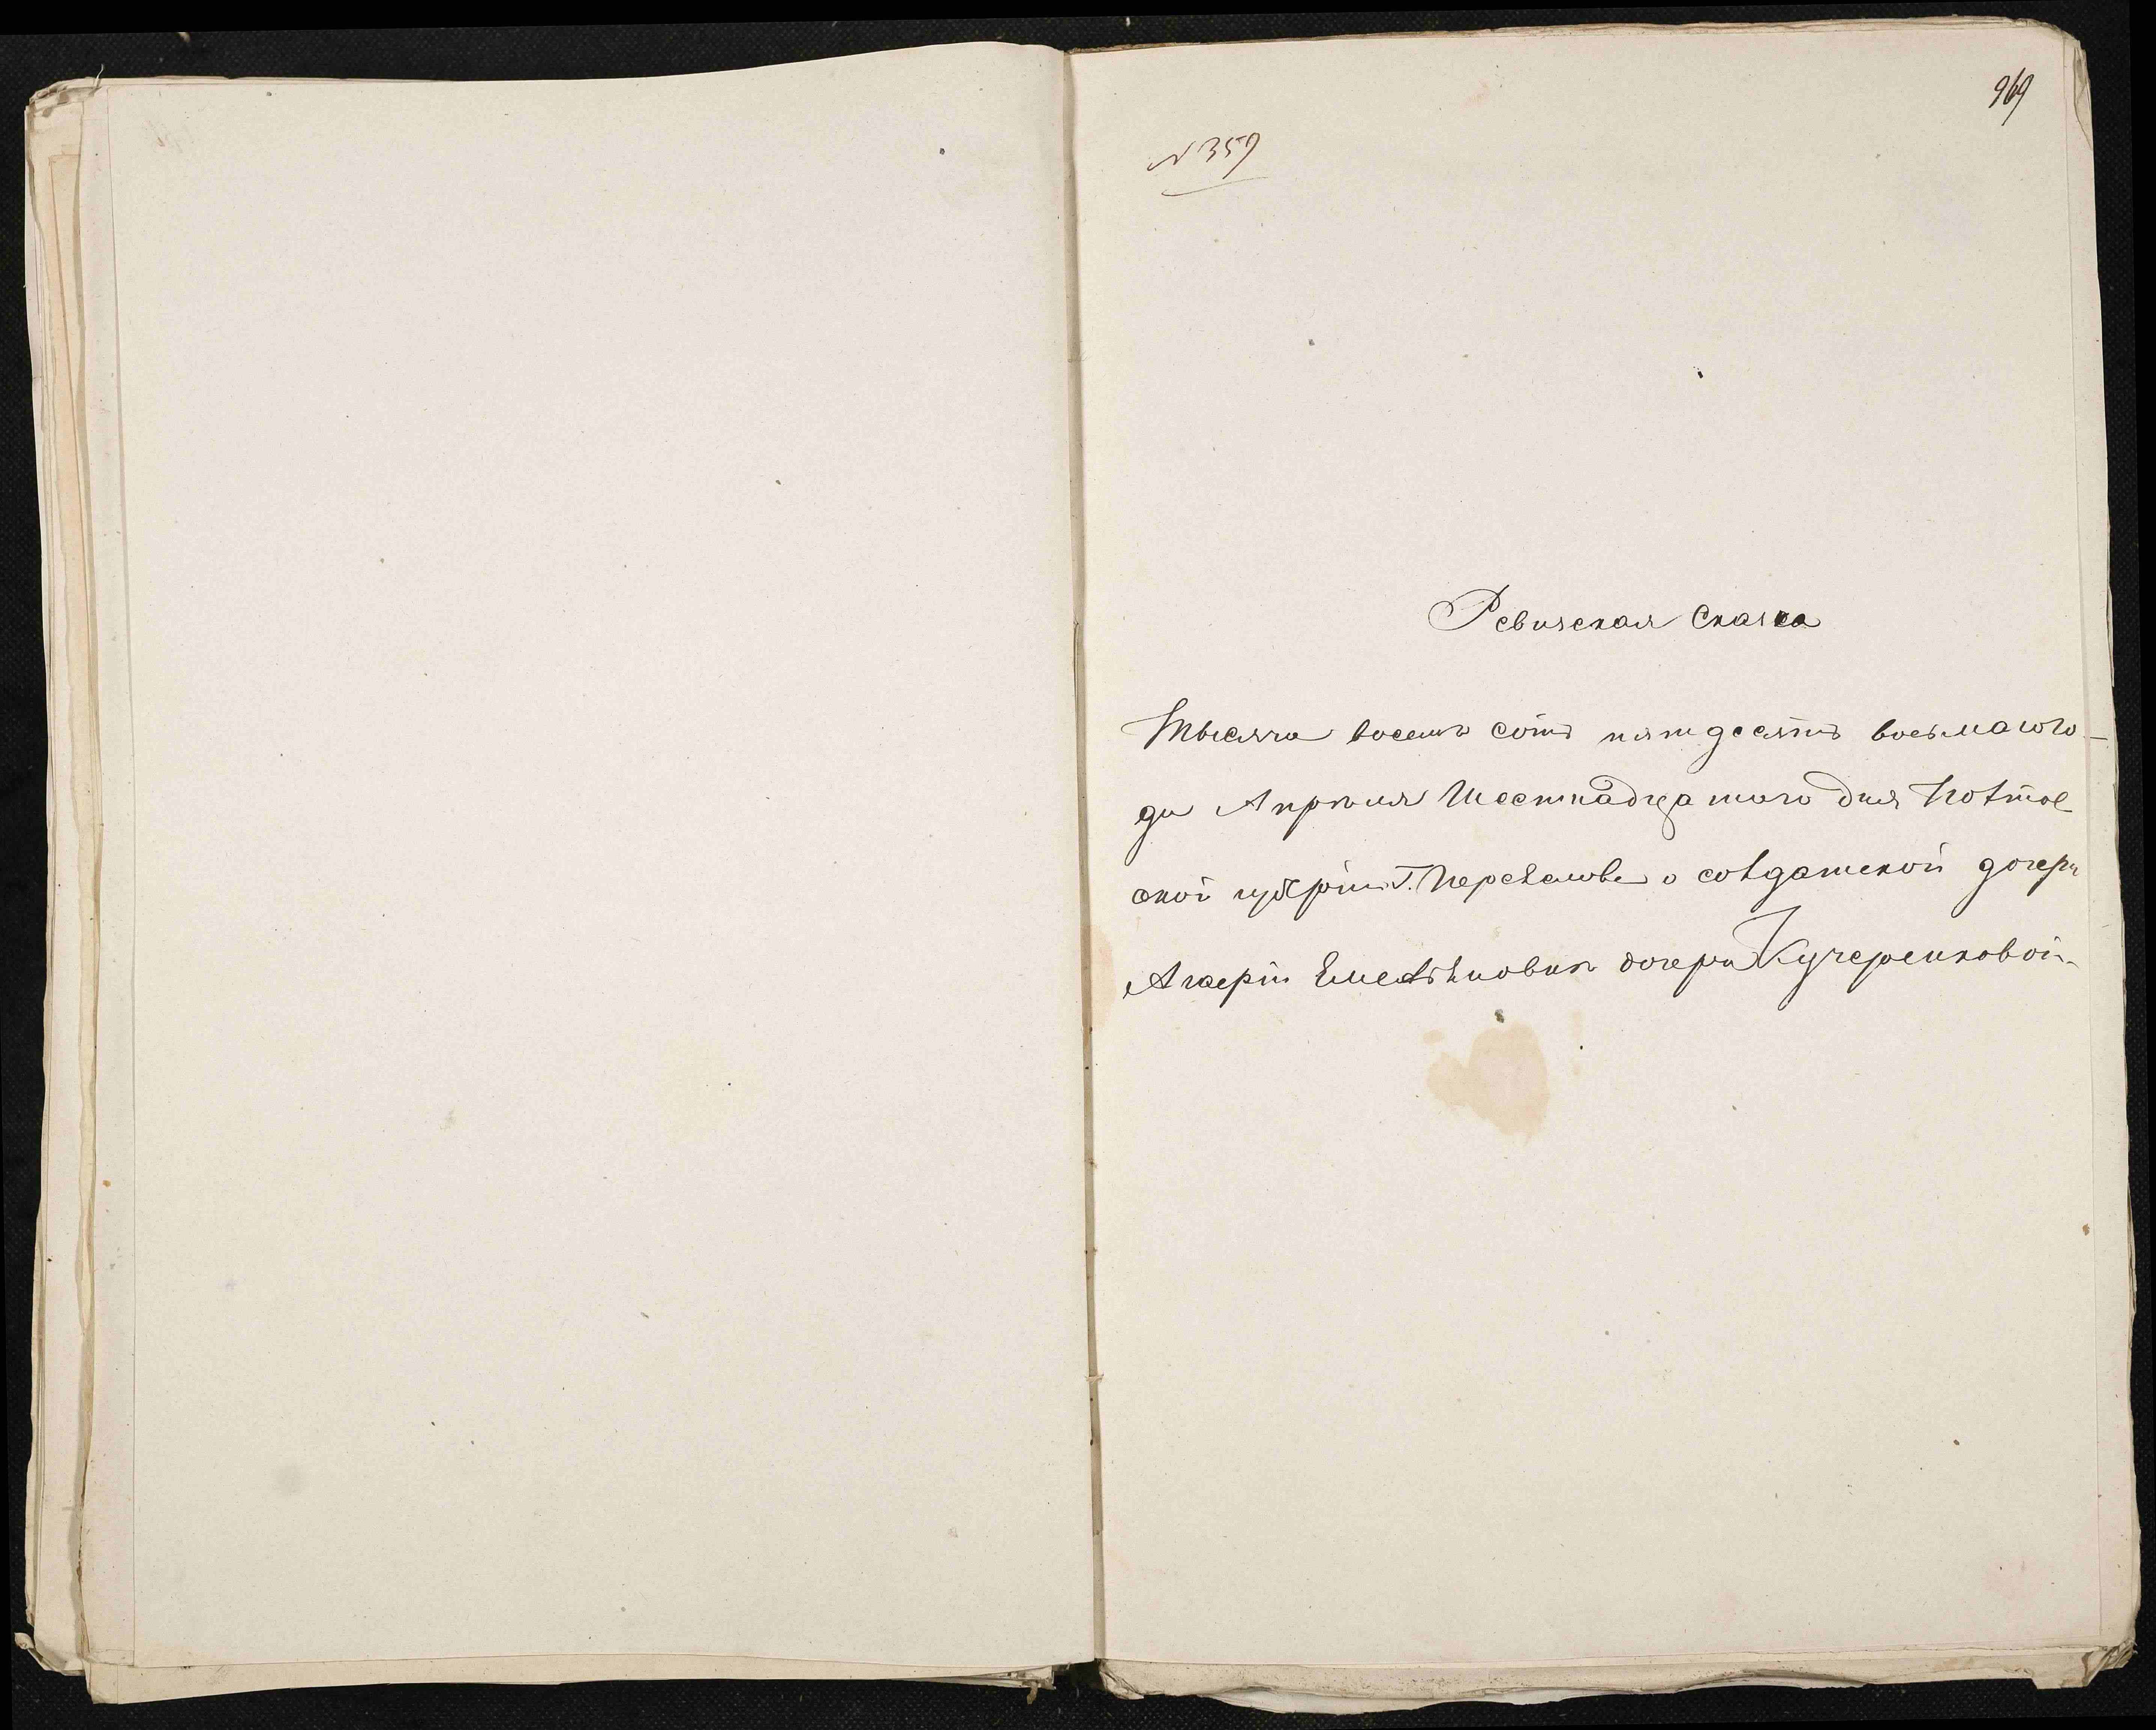 969
N 359
Ревизская Сказка
Тысяча восемь сотъ пятдесятъ восьмаго го-
да Апреля Шестнадцатого дня Полтав
ской губерніи Г. Переяслова о солдатской дочери
Агаерiи Емельяновой дочери Кучеренковой